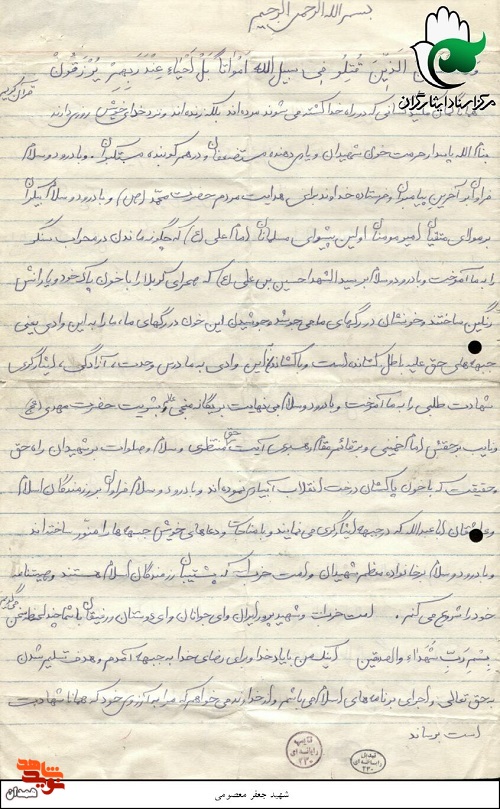 بسم الله الرحمن الرحیم
مرکز اسناد ایثارگران
الذین قتلوا فی سبیل الله امواتا بل احیاء عند ربهم یرزقون قرآن کریم
کسانی که در راه خدا کشته می شوند مرده‌اند بلکه زنده‌اند و نزد خدای خویش روزی دارند
بنام الله پاسدار حرمت خون شهیدان و یاری دهنده مستضعفان و درهم کوبنده مستکبران. و با درود و سلام
فراوان بر آخرین پیامبران و فرستاده خداوند برای هدایت مردم حضرت محمد (ص) و با درود و سلام بیکران
بر مولای متقیان امیر مومنان اولین پیشوای مسلمانان امام علی (ع) که چگونه ماندن در محراب سنگر
را به ما آموخت و با درود و سلام بر سید الشهدا حسین بن علی (ع) که صحرای کربلا را با خون پاک خود و یارانش
رنگین ساختند و خونشان در رگهای ما می جوشد و جوشیدن این خون در رگهای ما، ما را به این وادی یعنی
جبهه‌های حق علیه باطل کشانده است و پاکشانده این وادی به ما درس وحدت، آزادگی، ایثارگری
شهادت طلبی را به ما آموخت و با درود و سلام بی نهایت بر یگانه منجی عالم بشریت حضرت مهدی (عج)
و نایب بر حقش امام خمینی و بر قائم مقام رهبری آیت حق منتظری و سلام و صلوات بر شهیدان راه حق
و حقیقت که با خون پاکشان درخت انقلاب آبیاری نموده‌اند و با درود و سلام فراوان بر رزمندگان اسلام
و عاشقان ابا عبدالله که در جبهه ایثارگری می نمایند و با مناجات و دعاهای خویش جبهه‌ها را منور ساخته‌اند
و با درود و سلام بر خانواده معظم شهیدان و امت حزب الله که پشتیبان رزمندگان اسلام هستند وصیتنامه
خود را شروع می کنم. امت حزب الله و شهید پرور ایران و ای جوانان و ای دوستان و رفیقان با شما چند لحظه سخن می گویم
بسم رب الشهداء والصدقین اینک من با یاد خدا و برای رضای خدا به جبهه آمدم و هدف تسلیم شدن
به حق تعالی و اجرای برنامه‌های اسلامی باشم و از خداوند می خواهم که مرا به آرزوی خود که همانا شهادت
است برساند
تایپ رایانه ای ۲۳۰
تبدیل رایانه ای ۲۳۰
نوید شاهد
همدان
شهید جعفر معصومی